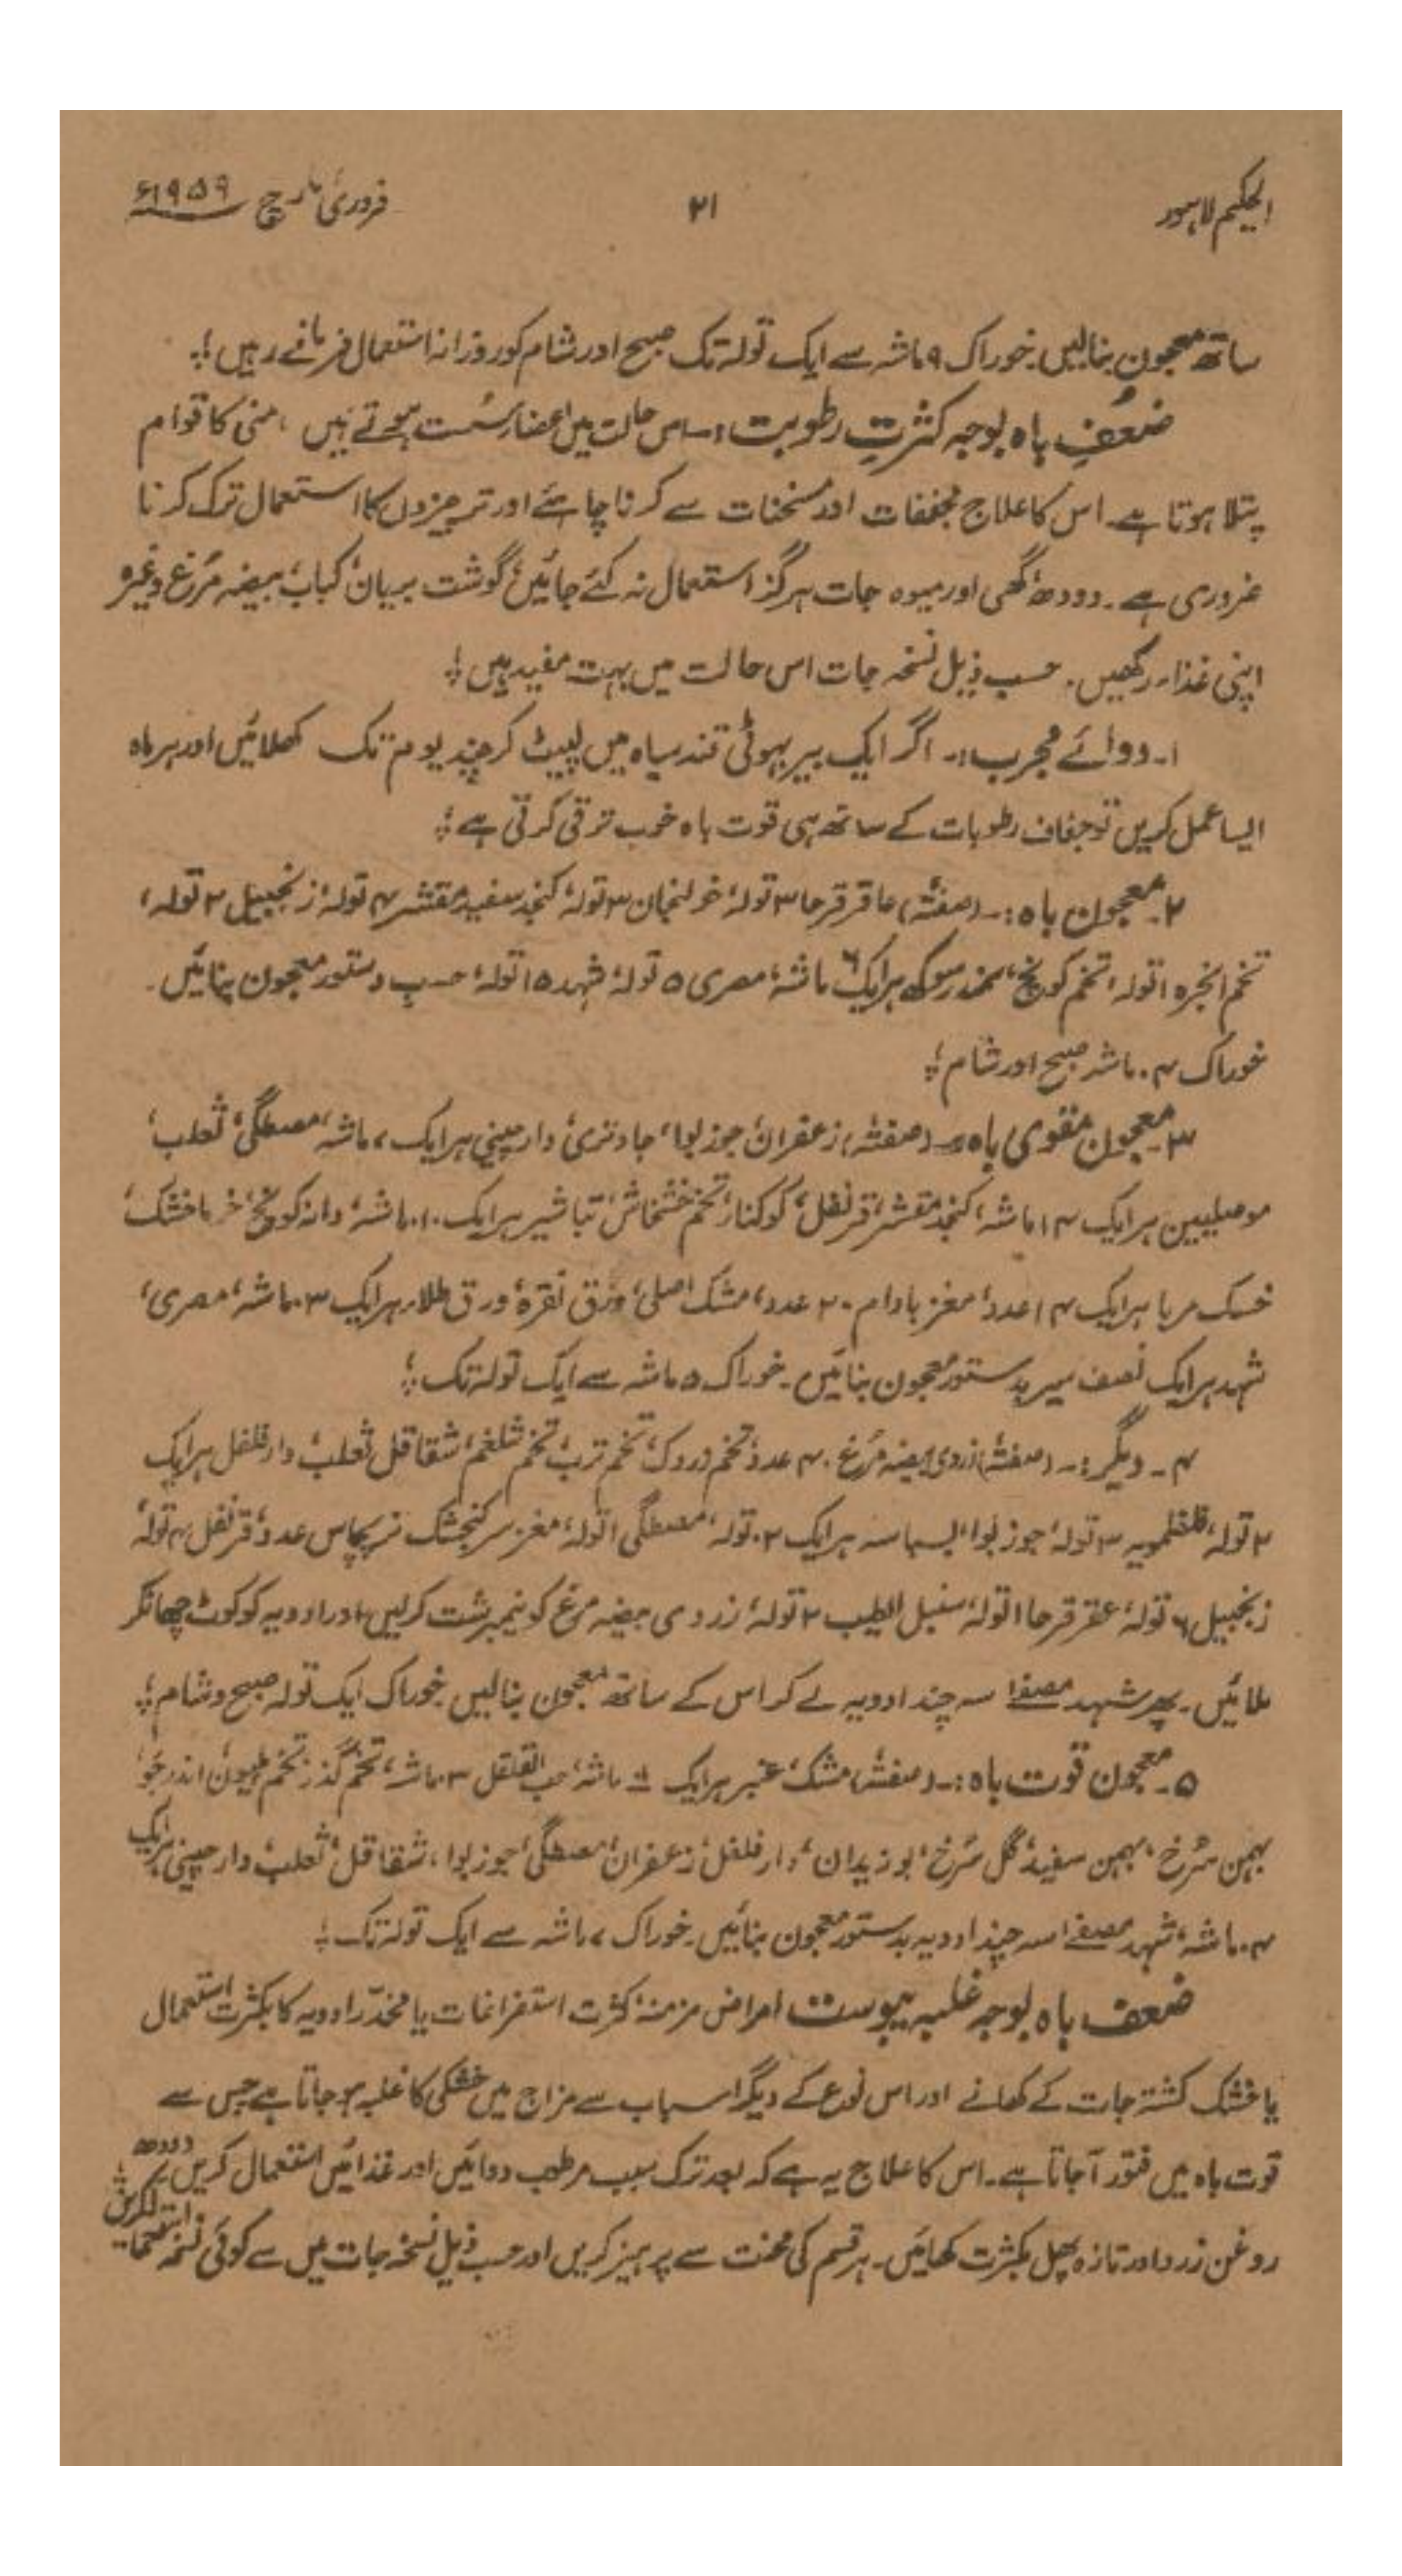 الحکیم لاہور ۲۱ فروری مارچ ۱۹۵۹ء
ساتھ معجون بنالیں خوراک ۹ ماشہ سے ایک تولہ تک صبح اور شام کو روزانہ استعمال فرماتے رہیں ؛
ضُعفِ باہ بوجہ کثرتِ رطوبت :۔ اس حالت میں اعضاء سُست ہوتے ہیں ، منی کا قوام
پتلا ہوتا ہے۔ اس کا علاج مجففات اور مسخنات سے کرنا چاہئے اور تر چیزوں کا استعمال ترک کرنا
ضروری ہے۔ دودھ، گھی اور میوہ جات ہرگز استعمال نہ کئے جائیں، گوشت بریان، کباب، بیضہ مُرغ وغیرہ
اپنی غذا رکھیں۔ حسب ذیل نسخہ جات اس حالت میں بہت مفید ہیں ؛
۱۔ دوائے مجرب :۔ اگر ایک بیر بہوٹی قند سیاہ میں لپیٹ کر چند یوم تک کھلائیں اور ہر ماہ
ایسا عمل کریں تو جفاف رطوبات کے ساتھ ہی قوت باہ خوب ترقی کرتی ہے ؛
۲۔ معجون باہ :۔ (صفتہٗ) عاقرقرحا ۳ تولہ، خولنجان ۳ تولہ، کنجد سفید مقشر ۴ تولہ، زنجبیل ۲ تولہ،
تخم انجرہ ۱ تولہ، تخم کونچ، سمندر سوکھ ہر ایک ۶ ماشہ، مصری ۵ تولہ، شہد ۱۵ تولہ، حسب دستور معجون بنائیں۔
خوراک ۴ ماشہ صبح اور شام ؛
۳۔ معجون مقوی باہ :۔ (صفتہٗ) زعفران، جوز بوا، جاوتری، دار چینی ہر ایک ۷ ماشہ، مصطگی، ثعلب،
موصلیین ہر ایک ۱۴ ماشہ، کنجد مقشر، قرنفل، کوکنار، تخم خشخاش، تباشیر ہر ایک ۱۰ ماشہ، دانہ کونچ، خرما خشک،
خسک مربا ہر ایک ۱۴ عدد، مغز بادام ۲۰ عدد، مشک اصلی، ورق نقرہ، ورق طلاء ہر ایک ۳ ماشہ، مصری،
شہد ہر ایک نصف سیر بدستور معجون بنائیں۔ خوراک ۵ ماشہ سے ایک تولہ تک ؛
۴۔ دیگر :۔ (صفتہٗ) زردی بیضہ مُرغ ۴۰ عدد، تخم زردک، تخم ترب، تخم شلغم، شقاقل، ثعلب، دار فلفل ہر ایک
۲ تولہ، فلفلمویہ ۳ تولہ، جوز بوا، بسباسہ ہر ایک ۲ تولہ، مصطگی ۱ تولہ، مغز سر کنجشک نر پچاس عدد، قرنفل ۴ تولہ،
زنجبیل ۶ تولہ، عقرقرحا ۱ تولہ، سنبل الطیب ۲ تولہ، زردی بیضہ مرغ کو نیمبرشت کرلیں، اور ادویہ کو کوٹ چھانکر
ملائیں۔ پھر شہد مصفےٰ سہ چند ادویہ لے کر اس کے ساتھ معجون بنالیں خوراک ایک تولہ صبح و شام ؛
۵۔ معجون قوت باہ :۔ (صفتہٗ) مشک، عنبر ہر ایک ماشہ، حب القلقل ۳ ماشہ، تخم گذر، تخم ہلیون، اندر جَو،
بہمن سُرخ، بہمن سفید، گل سُرخ، بوزیدان، دار فلفل، زعفران، مصطگی، جوز بوا، شقاقل، ثعلب، دار چینی ہر ایک
۴ ماشہ، شہد مصفےٰ سہ چند ادویہ بدستور معجون بنائیں۔ خوراک ۷ ماشہ سے ایک تولہ تک ؛
ضعف باہ بوجہ غلبہ یبوست امراض مزمنہ، کثرت استفراغات یا مخدّر ادویہ کا بکثرت استعمال
یا خشک کشتہ جات کے کھانے اور اس نوع کے دیگر اسباب سے مزاج میں خشکی کا غلبہ ہو جاتا ہے جس سے
قوت باہ میں فتور آجاتا ہے۔ اس کا علاج یہ ہے کہ بعد ترک سبب مرطب دوائیں اور غذائیں استعمال کریں۔ دودھ،
روغن زرد اور تازہ پھل بکثرت کھائیں۔ ہر قسم کی محنت سے پرہیز کریں اور حسب ذیل نسخہ جات میں سے کوئی نسخہ استعمال کریں